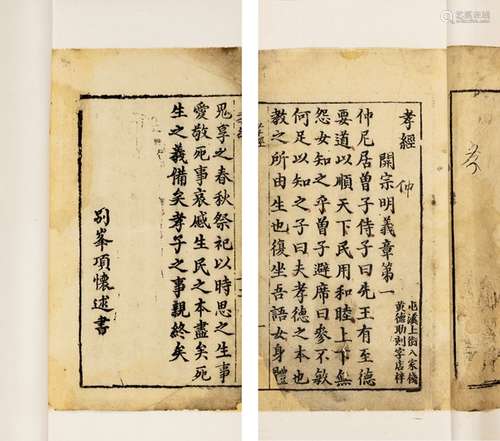 孝經 仲
開宗明義章第一
屯溪上街八家棧
黃德助刻字店梓
仲尼居曾子侍子曰先王有至德
要道以順天下民用和睦上下無
怨女知之乎曾子避席曰參不敏
何足以知之子曰夫孝德之本也
教之所由生也復坐吾語女身體
孝經
鬼享之春秋祭祀以時思之生事
愛敬死事哀戚生民之本盡矣死
生之義備矣孝子之事親終矣
別峯項懷述書